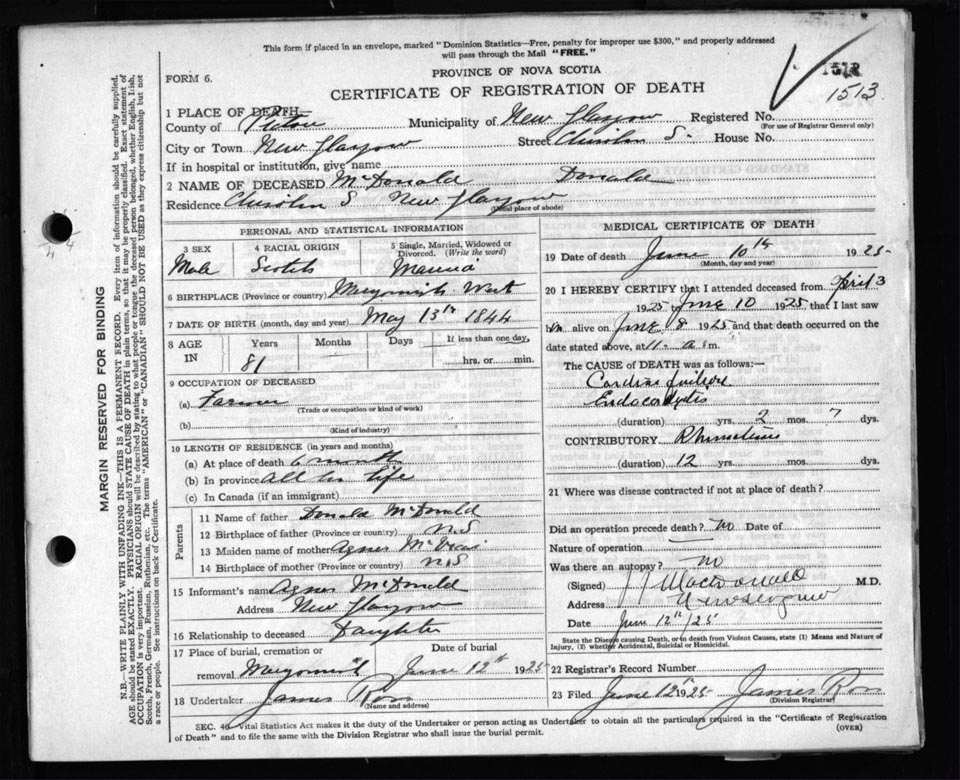 This form if placed in an envelope, marked "Dominion Statistics—Free, penalty for improper use $300," and properly addressed
will pass through the Mail "FREE."
PROVINCE OF NOVA SCOTIA
FORM 6.
CERTIFICATE OF REGISTRATION OF DEATH
1513
1 PLACE OF DEATH
County of Pictou Municipality of New Glasgow Registered No.
(For use of Registrar General only)
City or Town New Glasgow Street Chisolm S. House No.
If in hospital or institution, give name
2 NAME OF DECEASED McDonald Donald
Residence Chisolm S New Glasgow
(Usual place of abode)
PERSONAL AND STATISTICAL INFORMATION
3 SEX 4 RACIAL ORIGIN 5 Single, Married, Widowed or Divorced. (Write the word)
Male Scotch Married
6 BIRTHPLACE (Province or country) Merigomish West
7 DATE OF BIRTH (month, day and year) May 13th 1844
8 AGE IN Years Months Days If less than one day,
81 hrs. or min.
9 OCCUPATION OF DECEASED
(a) Farmer
(Trade or occupation or kind of work)
(b)
(Kind of industry)
10 LENGTH OF RESIDENCE (in years and months)
(a) At place of death 6 months
(b) In province All his life
(c) In Canada (if an immigrant)
Parents
11 Name of father Donald McDonald
12 Birthplace of father (Province or country) N.S
13 Maiden name of mother Agnes
14 Birthplace of mother (Province or country) N.S
15 Informant's name Agnes McDonald
Address New Glasgow
16 Relationship to deceased Daughter
17 Place of burial, cremation or Date of burial
removal Merigomish June 12th 1925
18 Undertaker James Ross
(Name and address)
MEDICAL CERTIFICATE OF DEATH
19 Date of death June 10th 1925
(Month, day and year)
20 I HEREBY CERTIFY that I attended deceased from April 3
1925 June 10 1925 that I last saw
him alive on June 8 1925 and that death occurred on
date stated above, at 11 a. m.
The CAUSE OF DEATH was as follows:—
Cardiac failure
Endocarditis
(duration) yrs. 2 mos. 7 dys.
CONTRIBUTORY Rheumatism
(duration) 12 yrs. mos. dys.
21 Where was disease contracted if not at place of death?
Did an operation precede death? No Date of
Nature of operation
Was there an autopsy? no
(Signed) MacDonald M.D.
Address New Glasgow
Date June 12th/25
State the Disease causing Death, or in death from Violent Causes, state (1) Means and Nature of
Injury, (2) whether Accidental, Suicidal or Homicidal.
22 Registrar's Record Number
23 Filed June 12th 1925 James Ross
(Division Registrar)
SEC. 40 Vital Statistics Act makes it the duty of the Undertaker or person acting as Undertaker to obtain all the particulars required in the "Certificate of Registration
of Death" and to file the same with the Division Registrar who shall issue the burial permit.
(OVER)
MARGIN RESERVED FOR BINDING
N.B.—WRITE PLAINLY WITH UNFADING INK—THIS IS A PERMANENT RECORD. Every item of information should be carefully supplied.
AGE should be stated EXACTLY. PHYSICIANS should STATE CAUSE OF DEATH in plain terms, so that it may be properly classified. Exact statement of
OCCUPATION is very important. RACIAL ORIGIN will be described by stating to what people or tongue the deceased person belonged, whether English, Irish,
Scotch, French, German, Russian, Ruthenian, etc. The terms "AMERICAN" or "CANADIAN" SHOULD NOT BE USED as they express citizenship but not
a race or people. See instructions on back of Certificate.